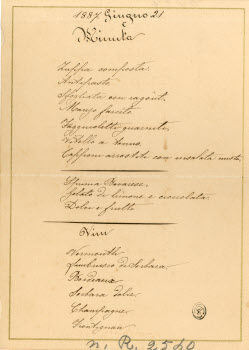 1887 Giugno 21
Minuta
Zuppa composta
Antipasto
Sfogliata con ragout
Manzo farcito
guarnite
Vitello a tonno
Capponi arrostiti con insalata mista
Spuma Bavarese
Gelato di limone e cioccolata
Dolce e frutta
Vini
Vermouth
Lambrusco di Sorbara
Bordeaux
Sorbara dolce
Champagne
Frontignan
n. R. 2540